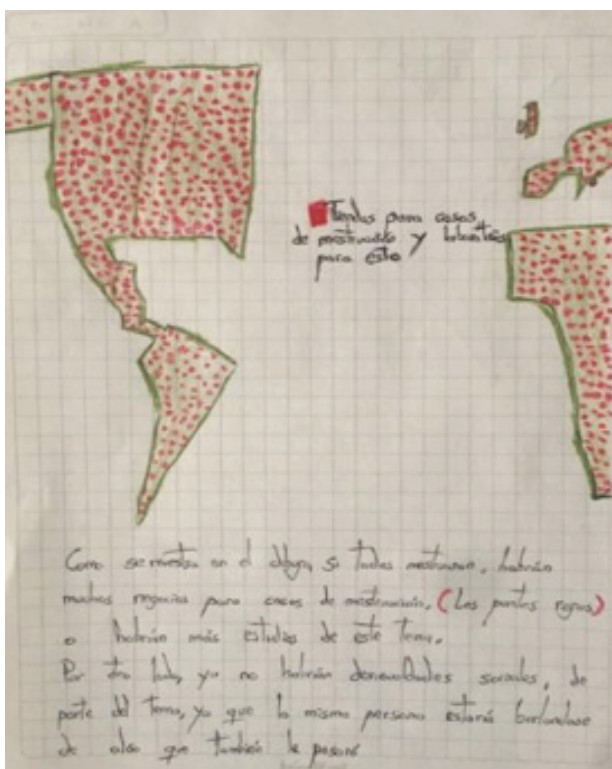 Tiendas para cosas
de menstruación y
para esto
Como se muestra en el dibujo, si todos menstruaran, habrían
muchos negocios para cosas de menstruación, (Los puntos rojos)
o habrían más estudios de este tema.
Por otro lado, ya no habrían sociales, de
parte del tema, ya que la misma persona estaría burlandose
de algo que también le pasará